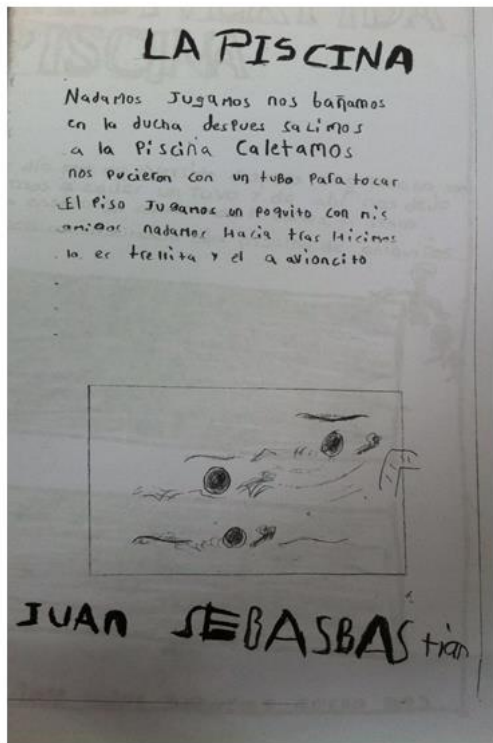 LA PISCINA
Nadamos Jugamos nos bañamos
en la ducha despues salimos
a la Piscina Caletamos
nos pucieron con un tubo para tocar
El Piso Jugamos un poquito con mis
amigos nadamos Hacia tras Hicimos
la es trellita y el a avioncito
JUAN SEBASBAStian